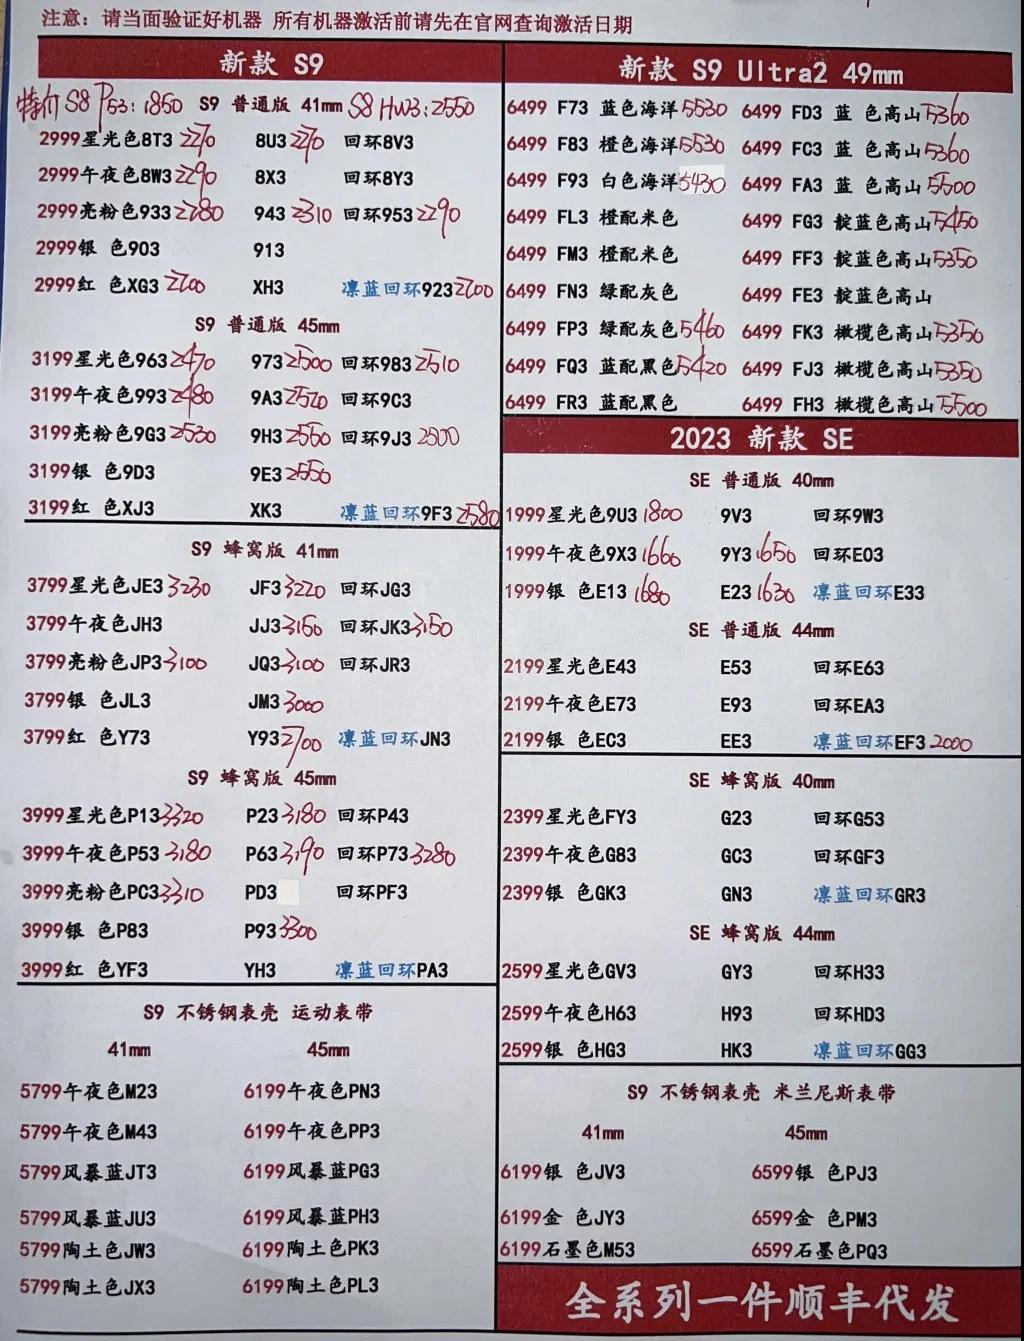 注意：请当面验证好机器 所有机器激活前请先在官网查询激活日期
新款 S9
特价 S8 P53:1850 S9 普通版 41mm S8 HW3:2550
2999星光色8T3 2270 8U3 2270 回环8V3
2999午夜色8W3 2290 8X3 回环8Y3
2999亮粉色933 2280 943 2310 回环953 2290
2999银 色903 913
2999红 色XG3 2200 XH3 凛蓝回环923 2200
S9 普通版 45mm
3199星光色963 2470 973 2500 回环983 2510
3199午夜色993 2480 9A3 2520 回环9C3
3199亮粉色9G3 2530 9H3 2550 回环9J3 2500
3199银 色9D3 9E3 2550
3199红 色XJ3 XK3 凛蓝回环9F3 2580
S9 蜂窝版 41mm
3799星光色JE3 3230 JF3 3220 回环JG3
3799午夜色JH3 JJ3 3150 回环JK3 3150
3799亮粉色JP3 3100 JQ3 3100 回环JR3
3799银 色JL3 JM3 3000
3799红 色Y73 Y93 2700 凛蓝回环JN3
S9 蜂窝版 45mm
3999星光色P13 3320 P23 3180 回环P43
3999午夜色P53 3180 P63 3190 回环P73 3280
3999亮粉色PC3 3310 PD3 回环PF3
3999银 色P83 P93 3300
3999红 色YF3 YH3 凛蓝回环PA3
S9 不锈钢表壳 运动表带
41mm 45mm
5799午夜色M23 6199午夜色PN3
5799午夜色M43 6199午夜色PP3
5799风暴蓝JT3 6199风暴蓝PG3
5799风暴蓝JU3 6199风暴蓝PH3
5799陶土色JW3 6199陶土色PK3
5799陶土色JX3 6199陶土色PL3
新款 S9 Ultra2 49mm
6499 F73 蓝色海洋 5530 6499 FD3 蓝 色高山 5360
6499 F83 橙色海洋 5530 6499 FC3 蓝 色高山 5360
6499 F93 白色海洋 5430 6499 FA3 蓝 色高山 5500
6499 FL3 橙配米色 6499 FG3 靛蓝色高山 5450
6499 FM3 橙配米色 6499 FF3 靛蓝色高山 5350
6499 FN3 绿配灰色 6499 FE3 靛蓝色高山
6499 FP3 绿配灰色 5460 6499 FK3 橄榄色高山 5350
6499 FQ3 蓝配黑色 5420 6499 FJ3 橄榄色高山 5350
6499 FR3 蓝配黑色 6499 FH3 橄榄色高山 5500
2023 新款 SE
SE 普通版 40mm
1999星光色9U3 1800 9V3 回环9W3
1999午夜色9X3 1660 9Y3 1650 回环E03
1999银 色E13 1680 E23 1630 凛蓝回环E33
SE 普通版 44mm
2199星光色E43 E53 回环E63
2199午夜色E73 E93 回环EA3
2199银 色EC3 EE3 凛蓝回环EF3 2000
SE 蜂窝版 40mm
2399星光色FY3 G23 回环G53
2399午夜色G83 GC3 回环GF3
2399银 色GK3 GN3 凛蓝回环GR3
SE 蜂窝版 44mm
2599星光色GV3 GY3 回环H33
2599午夜色H63 H93 回环HD3
2599银 色HG3 HK3 凛蓝回环GG3
S9 不锈钢表壳 米兰尼斯表带
41mm 45mm
6199银 色JV3 6599银 色PJ3
6199金 色JY3 6599金 色PM3
6199石墨色M53 6599石墨色PQ3
全系列一件顺丰代发